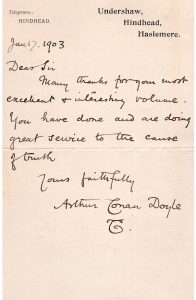 Telegrams,
HINDHEAD.
Undershaw,
Hindhead,
Haslemere.
Jan 17. 1903
Dear Sir
Many thanks for your most
excellent & interesting volume.
You have done and are doing
great service to the cause
of truth
Yours faithfully
Arthur Conan Doyle